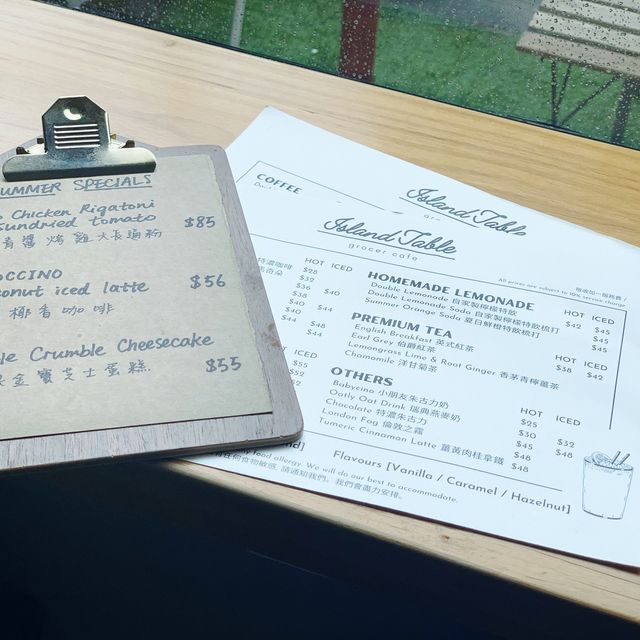 SUMMER SPECIALS
Chicken Rigatoni
Sundried tomato $85
青醬烤雞大長通粉
coconut iced latte $56
椰香咖啡
Crumble Cheesecake
金寶芝士蛋糕 $55
COFFEE
Island Table
Island Table
grocer cafe
All prices are subject to 10% service charge
HOT ICED
特濃咖啡 $28
$32
$36 $40
$38
$40
$40
$44 $48
$44 $48
HOMEMADE LEMONADE HOT ICED
Double Lemonade 自家製檸檬特飲 $42 $45
Double Lemonade Soda 自家製檸檬特飲梳打 $45
Summer Orange Soda 夏日鮮橙特飲梳打 $45
PREMIUM TEA HOT ICED
English Breakfast 英式紅茶 $38 $42
Earl Grey 伯爵紅茶
Lemongrass Lime & Root Ginger 香茅青檸薑茶
Chamomile 洋甘菊茶
OTHERS HOT ICED
Babycino 小朋友朱古力奶 $25
Oatly Oat Drink 瑞典燕麥奶 $30 $32
Chocolate 特濃朱古力 $45 $48
London Fog 倫敦之霧 $48
Tumeric Cinnamon Latte 薑黃肉桂拿鐵 $48
Flavours [Vanilla / Caramel / Hazelnut]
food allergy. We will do our best to accommodate.
任何食物敏感, 請通知我們。我們會盡力安排。